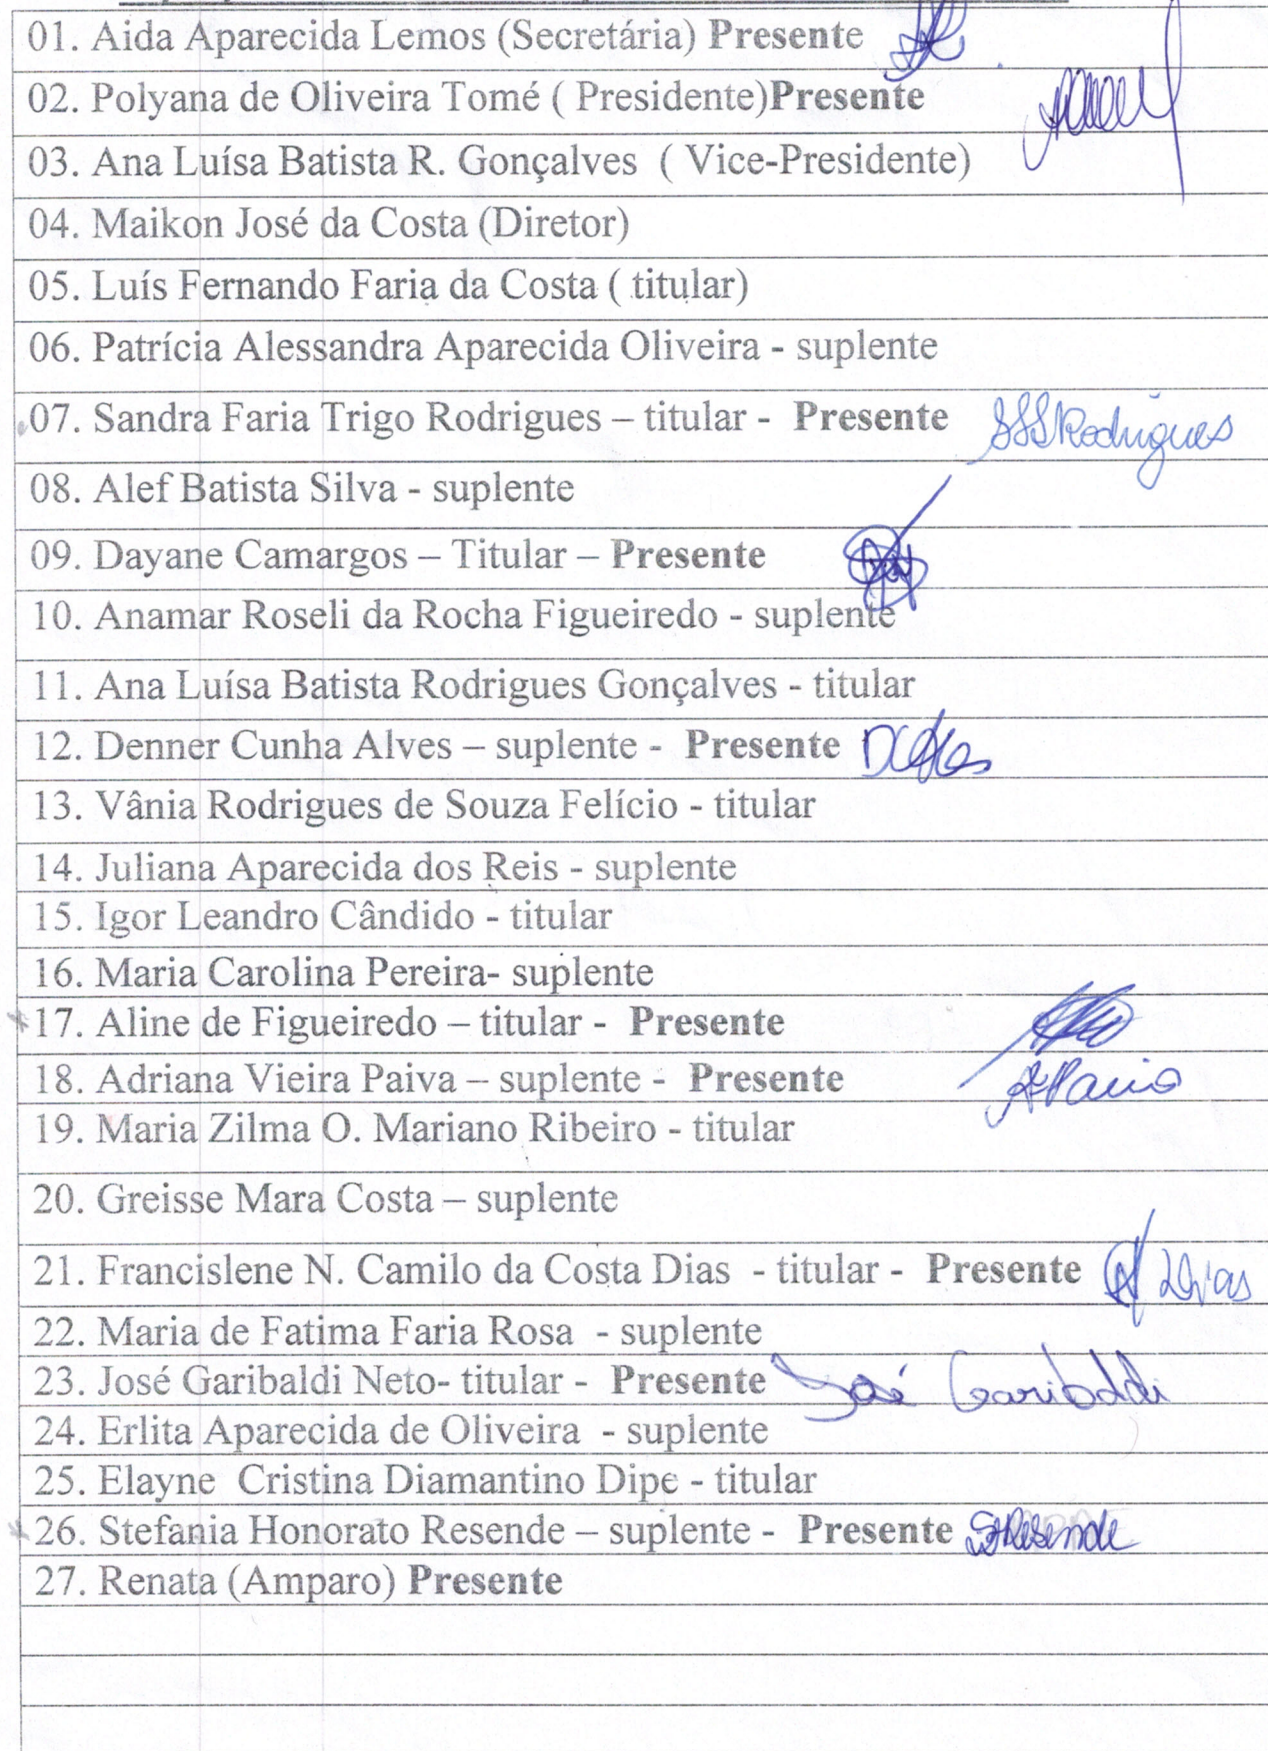 01. Aida Aparecida Lemos (Secretária) Presente
02. Polyana de Oliveira Tomé ( Presidente)Presente
03. Ana Luísa Batista R. Gonçalves ( Vice-Presidente)
04. Maikon José da Costa (Diretor)
05. Luís Fernando Faria da Costa ( titular)
06. Patrícia Alessandra Aparecida Oliveira - suplente
07. Sandra Faria Trigo Rodrigues – titular - Presente SSSRodrigues
08. Alef Batista Silva - suplente
09. Dayane Camargos – Titular – Presente
10. Anamar Roseli da Rocha Figueiredo - suplente
11. Ana Luísa Batista Rodrigues Gonçalves - titular
12. Denner Cunha Alves – suplente - Presente
13. Vânia Rodrigues de Souza Felício - titular
14. Juliana Aparecida dos Reis - suplente
15. Igor Leandro Cândido - titular
16. Maria Carolina Pereira- suplente
17. Aline de Figueiredo – titular - Presente
18. Adriana Vieira Paiva – suplente - Presente
19. Maria Zilma O. Mariano Ribeiro - titular
20. Greisse Mara Costa – suplente
21. Francislene N. Camilo da Costa Dias - titular - Presente Dias
22. Maria de Fatima Faria Rosa - suplente
23. José Garibaldi Neto- titular - Presente José Garibaldi
24. Erlita Aparecida de Oliveira - suplente
25. Elayne Cristina Diamantino Dipe - titular
26. Stefania Honorato Resende – suplente - Presente SHResende
27. Renata (Amparo) Presente